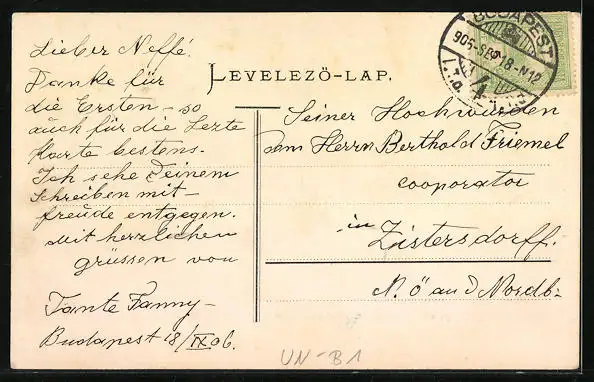 Lieber Neffe.
Danke für
die Ersten – so
auch für die Lezte
Karte bestens.
Ich sehe Deinem
Schreiben mit-
freude entgegen.
Mit herzlichen
grüssen von
Tante Fanny –
Budapest 18/IX 06.
LEVELEZÖ-LAP.
BUDAPEST
906 SEP 18-N12
Seiner Hochwürden
dem Herrn Berthold Friemel
cooporator
in
Zistersdorff.
N. ö an d Nordb:
UN-B1